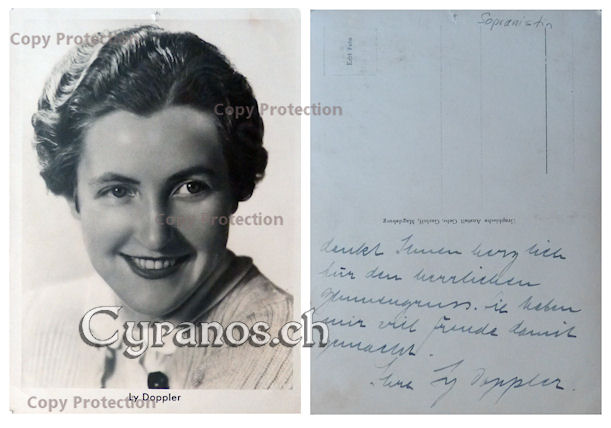 Copy Protection
Copy Protection
Copy Protection
Cyranos.ch
Ly Doppler
Copy Protection
Sopranistin
Echt Foto
Graphische Anstalt Gebr. Garloff, Magdeburg
dankt Ihnen herzlich
für den herrlichen
Blumengruss. Sie haben
mir viel Freude damit
gemacht.
Ihre Ly Doppler.